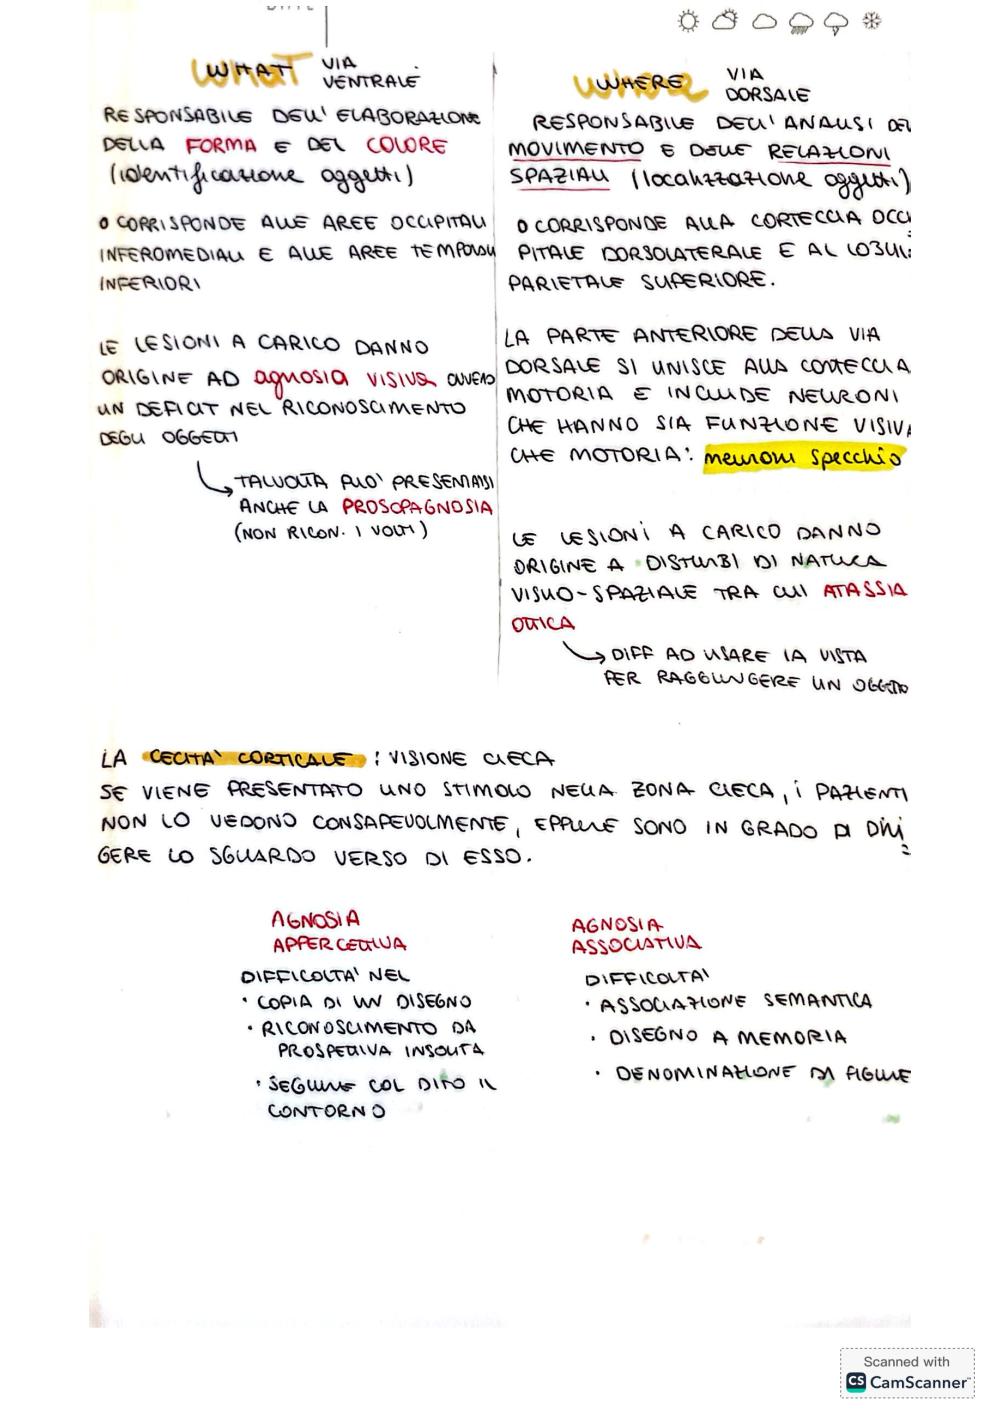 WHAT VIA
VENTRALE
RESPONSABILE DELL' ELABORAZIONE
DELLA FORMA E DEL COLORE
(identificazione oggetti)
• CORRISPONDE ALLE AREE OCCIPITALI
INFEROMEDIALI E ALLE AREE TEMPORALI
INFERIORI
LE LESIONI A CARICO DANNO
ORIGINE AD agnosia VISIVA OVVERO
UN DEFICIT NEL RICONOSCIMENTO
DEGLI OGGETTI
TALVOLTA PUO' PRESENTARSI
ANCHE LA PROSOPAGNOSIA
(NON RICON. I VOLTI)
WHERE VIA
DORSALE
RESPONSABILE DELL' ANALISI DEL
MOVIMENTO E DELLE RELAZIONI
SPAZIALI (localizzazione oggetti)
• CORRISPONDE ALLA CORTECCIA OCCI
PITALE DORSOLATERALE E AL LOBULO
PARIETALE SUPERIORE.
LA PARTE ANTERIORE DELLA VIA
DORSALE SI UNISCE ALLA CORTECCIA
MOTORIA E INCLUDE NEURONI
CHE HANNO SIA FUNZIONE VISIVA
CHE MOTORIA: neuroni specchio
LE LESIONI A CARICO DANNO
ORIGINE A DISTURBI DI NATURA
VISUO-SPAZIALE TRA CUI ATASSIA
OTTICA
DIFF AD USARE LA VISTA
PER RAGGIUNGERE UN OGGETTO
LA CECITA' CORTICALE : VISIONE CIECA
SE VIENE PRESENTATO UNO STIMOLO NELLA ZONA CIECA, i PAZIENTI
NON LO VEDONO CONSAPEVOLMENTE, EPPURE SONO IN GRADO DI DIRI=
GERE LO SGUARDO VERSO DI ESSO.
AGNOSIA
APPERCETTIVA
DIFFICOLTA' NEL
• COPIA DI UN DISEGNO
• RICONOSCIMENTO DA
PROSPETTIVA INSOLITA
• SEGUIRE COL DITO IL
CONTORNO
AGNOSIA
ASSOCIATIVA
DIFFICOLTA'
• ASSOCIAZIONE SEMANTICA
• DISEGNO A MEMORIA
• DENOMINAZIONE DI FIGURE
Scanned with
CS CamScanner